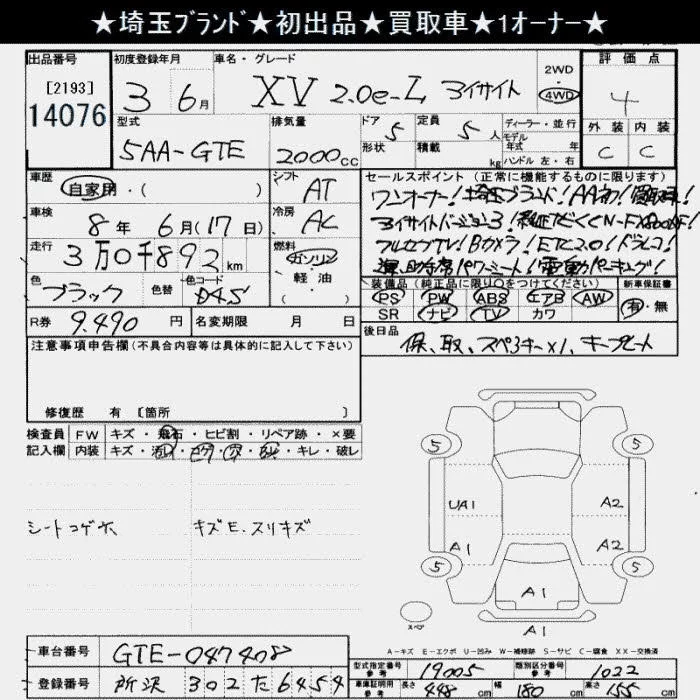 ★埼玉ﾌﾞﾗﾝﾄﾞ★初出品★買取車★1ｵｰﾅｰ★
出品番号 [2193] 14076
初度登録年月 3 6月
車名・グレード XV 2.0e-L アイサイト
2WD・4WD
評価点 4
外装 C 内装 C
型式 5AA-GTE
排気量 2000cc
ドア 5 形状
定員 5人 積載 kg
ディーラー・並行
モデル年式 年
ハンドル 左・右
車歴 自家用・( )
シフト AT
車検 8年 6月(17日)
冷房 AC
走行 3万0千892km
燃料 ガソリン・軽油・( )
色 ブラック 色替 色コード D4S
R券 9,490円 名変期限 月 日
セールスポイント(正常に機能するものに限ります)
ワンオーナー!埼玉ブランド!AA初!買取車!
アイサイトバージョン3!純正ナビ
フルセグTV!Bカメラ!ETC2.0!ドラレコ!
運、助手席パワーシート!電動パーキング!
装備品(純正品に限り○をつけてください)
PS PW ABS エアB AW
SR ナビ TV カワ
新車保証書 有・無
後日品 保、取、スペアキー×1、キープレート
注意事項申告欄(不具合内容等は具体的に記入して下さい)
修復歴 有 [箇所 ]
検査員記入欄
FW キズ・飛石・ヒビ割・リペア跡・×要
内装 キズ・汚れ・コゲ・穴・・キレ・破レ
シートコゲ穴
キズE.スリキズ
5 5
UA1 A2
A1 A2
5 5
A1
スペア
A1
A-キズ E-エクボ U-凹み W-補修跡 S-サビ C-腐食 XX-交換済
車台番号 GTE-047408
登録番号 所沢 302 た 6454
型式指定番号 参考 19005
類別区分番号 参考 1022
車庫証明用 参考 長さ 448cm 幅 180cm 高さ 155cm